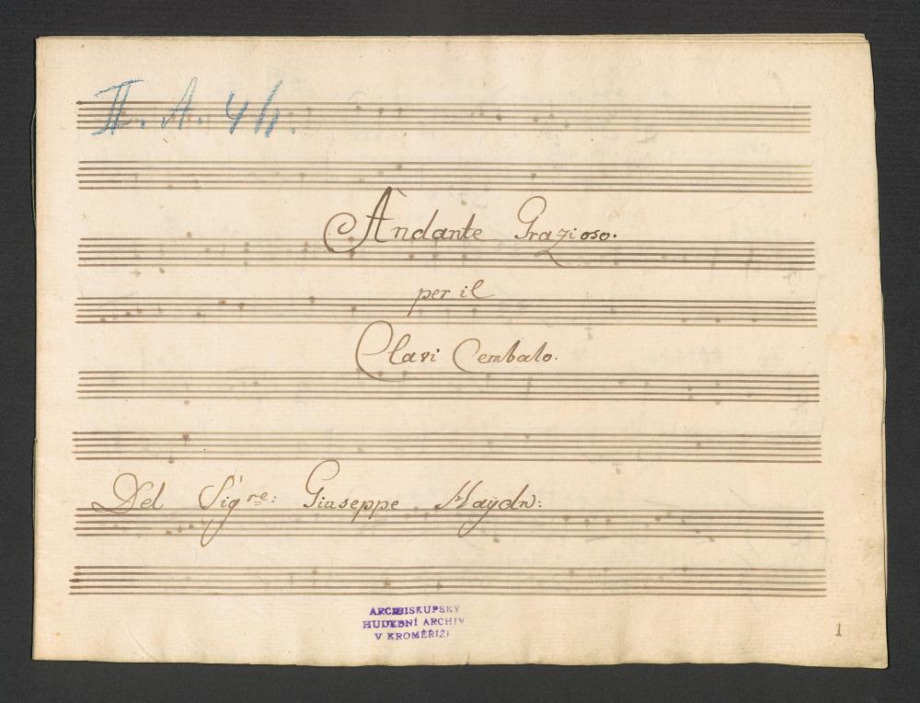 II. A. 4/1.
Andante Grazioso.
per il
Clavi Cembalo.
Del Sig͏̇re: Giuseppe Haÿdn:
ARCIBISKUPSKÝ
HUDEBNÍ ARCHIV
V KROMĚŘÍŽI
1